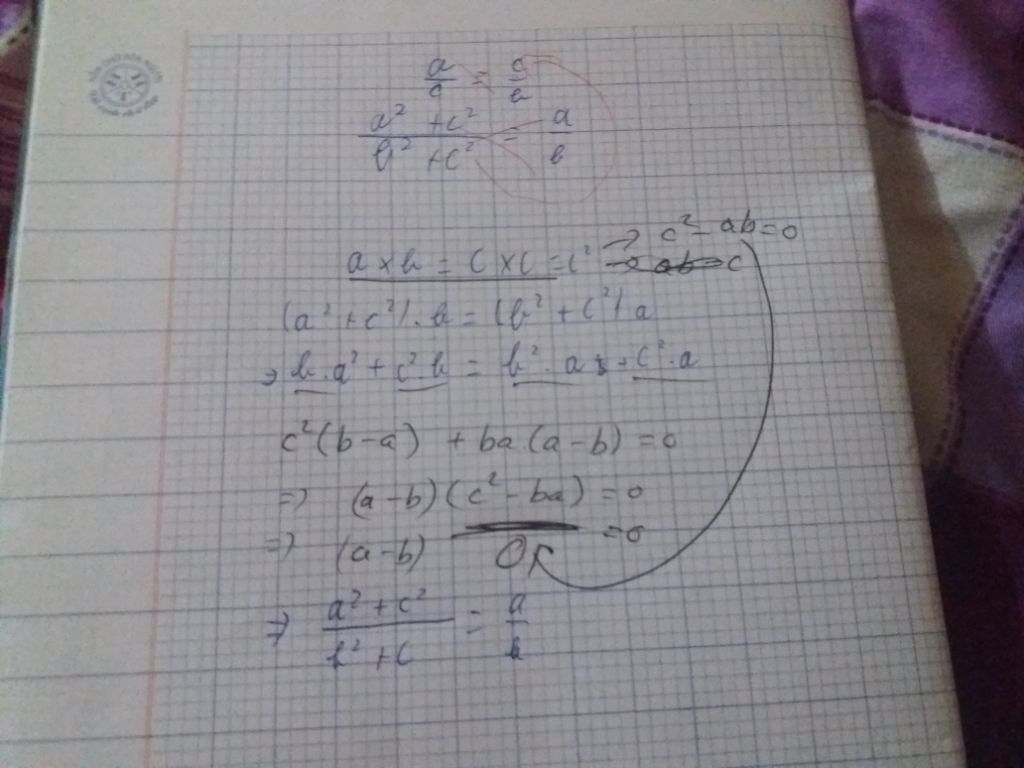 a/c = c/b
a² + c² / b² + c² = a/b
a × b = c × c = c² → c² - ab = 0
→ ab c
(a² + c²) . b = (b² + c²) a
⇒ b . a² + c² . b = b² . a + c² . a
c² (b - a) + ba . (a - b) = 0
=> (a - b) (c² - ba) = 0
=> (a - b) Or = 0
=> a² + c² / b² + c = a/b